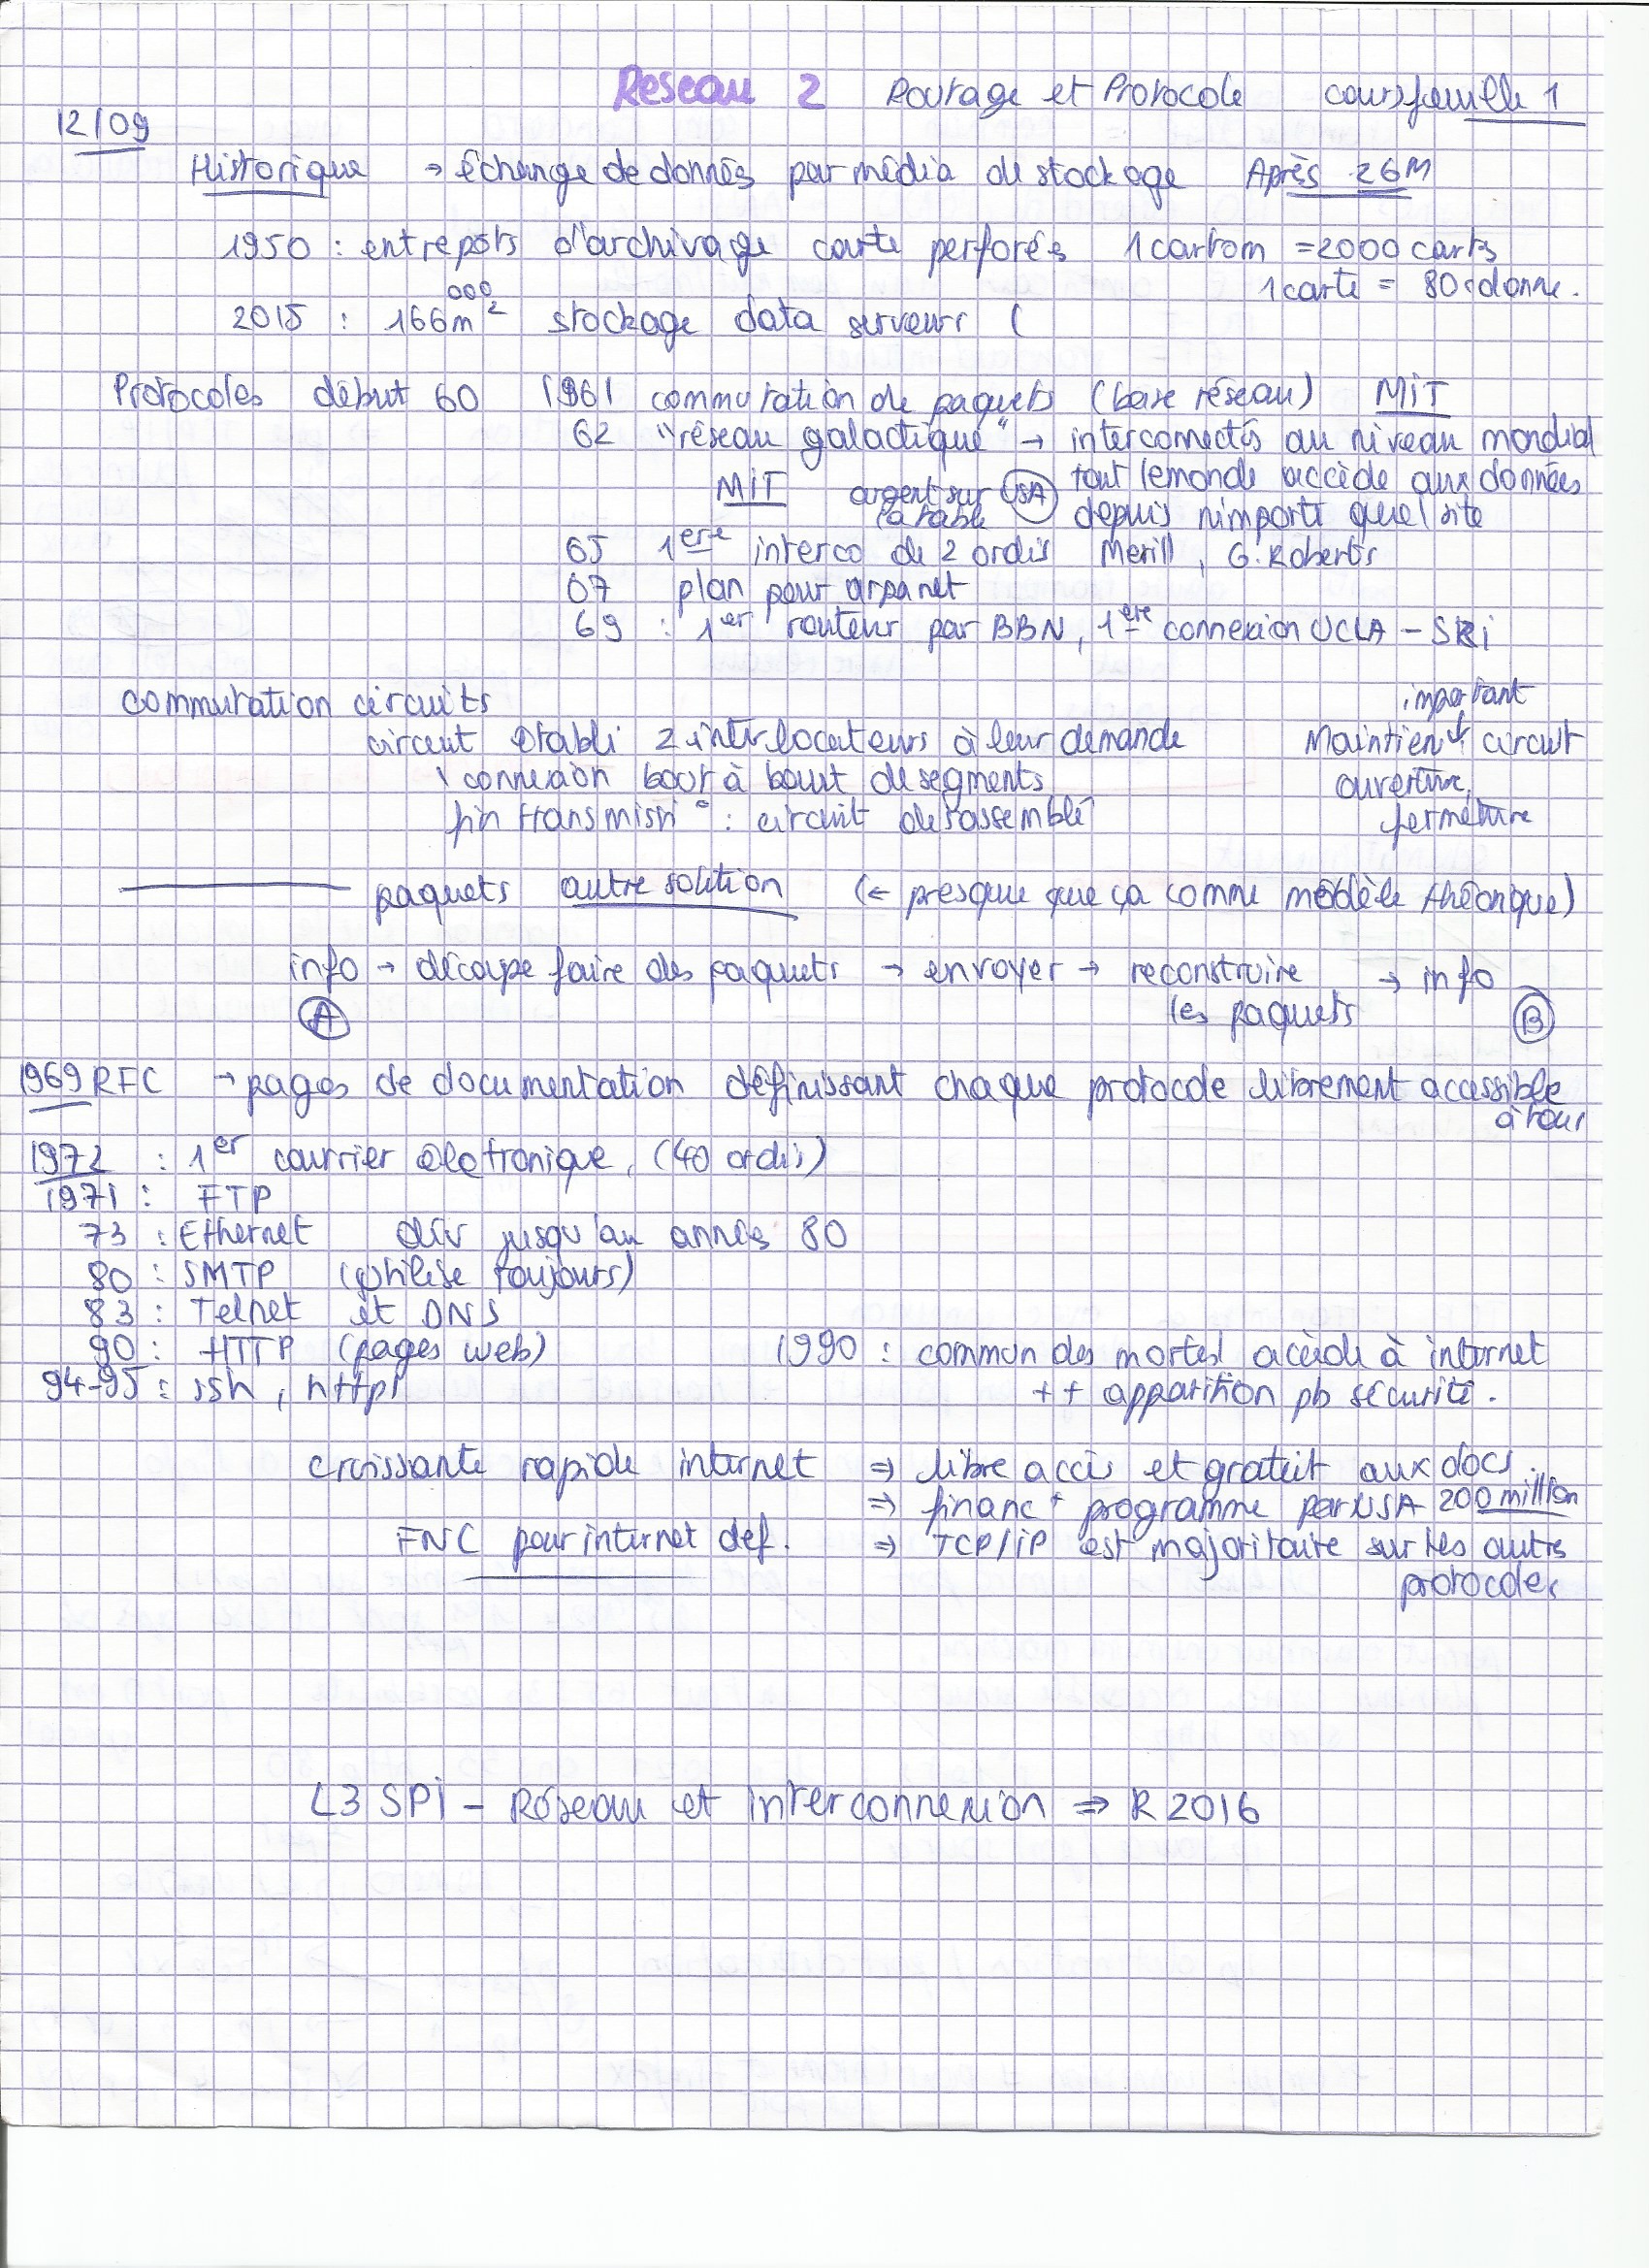 Reseau 2 Routage et Protocole cours feuille 1
12/09
Historique → échange de donnés par média de stockage Après 26M
1950 : entrepots d'archivage carte perforés 1 carton = 2000 carts
1 carte = 80 donne.
000
2015 : 166m² stockage data serveurs (
Protocoles début 60 1961 commutation de paquets (base réseau) MiT
62 "réseau galactique" → interconnectés au niveau mondial
MiT argent sur la table USA tout le monde accède aux données
depuis nimporte quel site
65 1ere interco de 2 ordis Merill, G. Roberts
67 plan pour arpanet
69 : 1er routeur par BBN, 1ere connexion UCLA - SRi
commutation circuits important
circuit établi 2 interlocuteurs à leur demande Maintien circuit
\ connexion bout à bout de segments ouverture,
fin transmissi° : circuit desassemblé fermeture
——— paquets autre solution (← presque que ça comme modèle théorique)
info → découpe faire des paquets → envoyer → reconstruire → info
A les paquets B
1969 RFC → pages de documentation définissant chaque protocole librement accessible
à tous
1972 : 1er courrier eletronique, (40 ordis)
1971 : FTP
73 : Ethernet dév jusqu'au annés 80
80 : SMTP (utilise toujours)
83 : Telnet et DNS
90 : HTTP (pages web) 1990 : commun des mortel accède à internet
94-95 : ssh, https ++ apparition pb sécurité.
croissante rapide internet ⇒ libre accès et gratuit aux docs.
⇒ financ+ programme par USA 200 million
FNC pour internet def. ⇒ TCP/iP est majoritaire sur les autres
protocoles
L3 SPi - Réseau et interconnexion ⇒ R2016